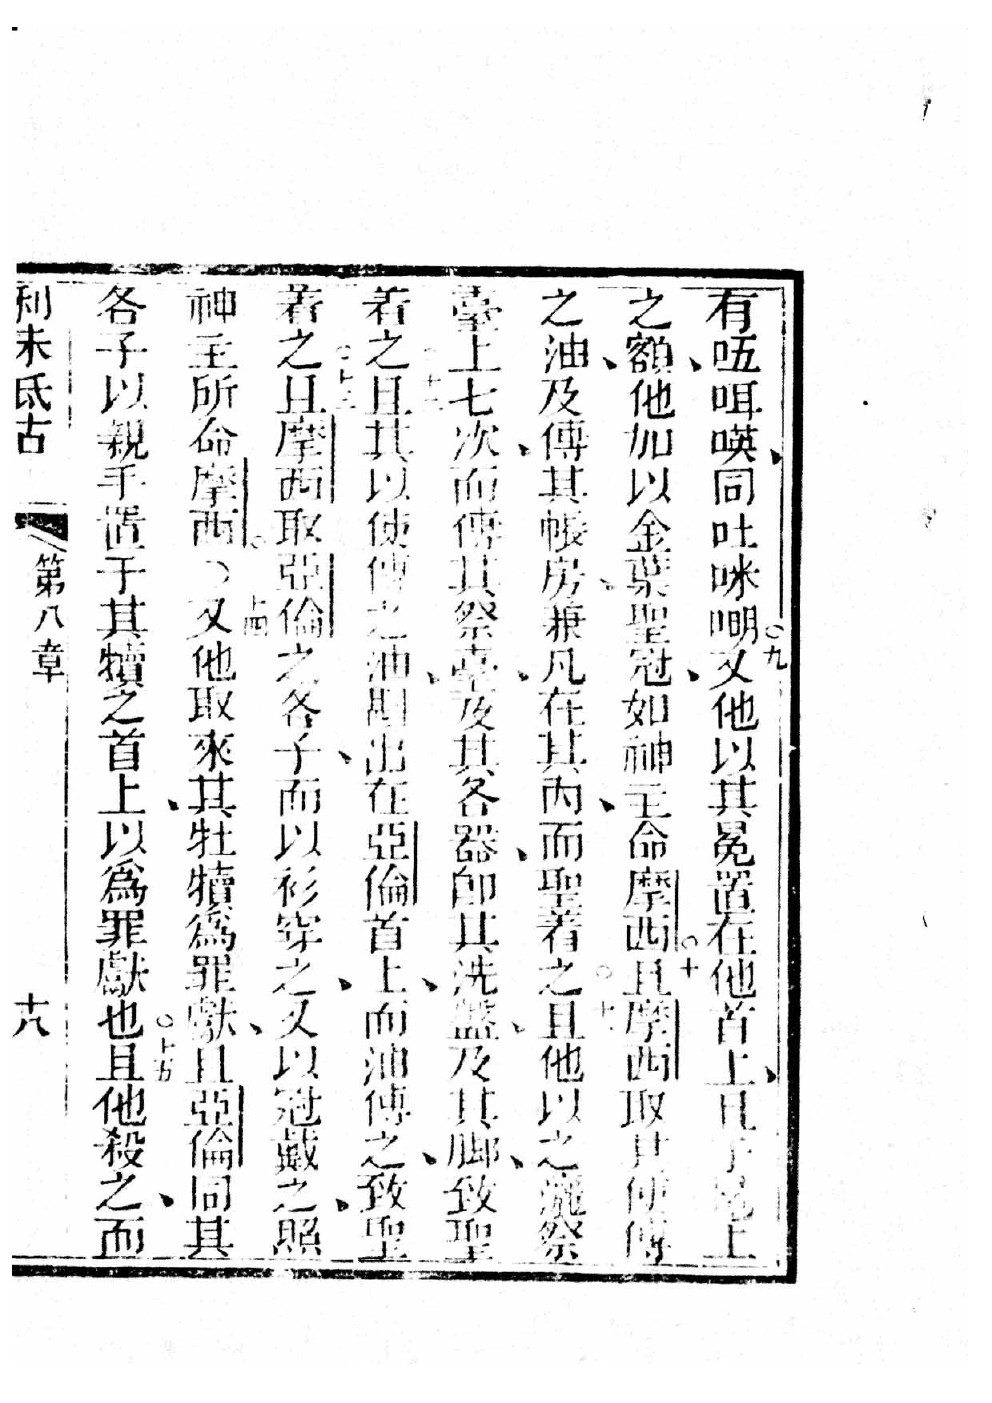 有㕶咡㗲同吐咪㗒○九又他以其冕置在他首上且于冕上
之額他加以金葉聖冠如神主命摩西○十且摩西取其使傅
之油及傅其帳房兼凡在其內而聖着之○十一且他以之灑祭
臺上七次而傅其祭臺及其各器卽其洗盤及其腳致聖
着之○十二且其以使傅之油斟出在亞倫首上而油傅之致聖
着之○十三且摩西取亞倫之各子而以衫穿之又以冠戴之照
神主所命摩西○十四又他取來其牡犢為罪獻且亞倫同其
各子以親手置于其犢之首上以為罪獻也○十五且他殺之而
利未氏古 第八章 十八